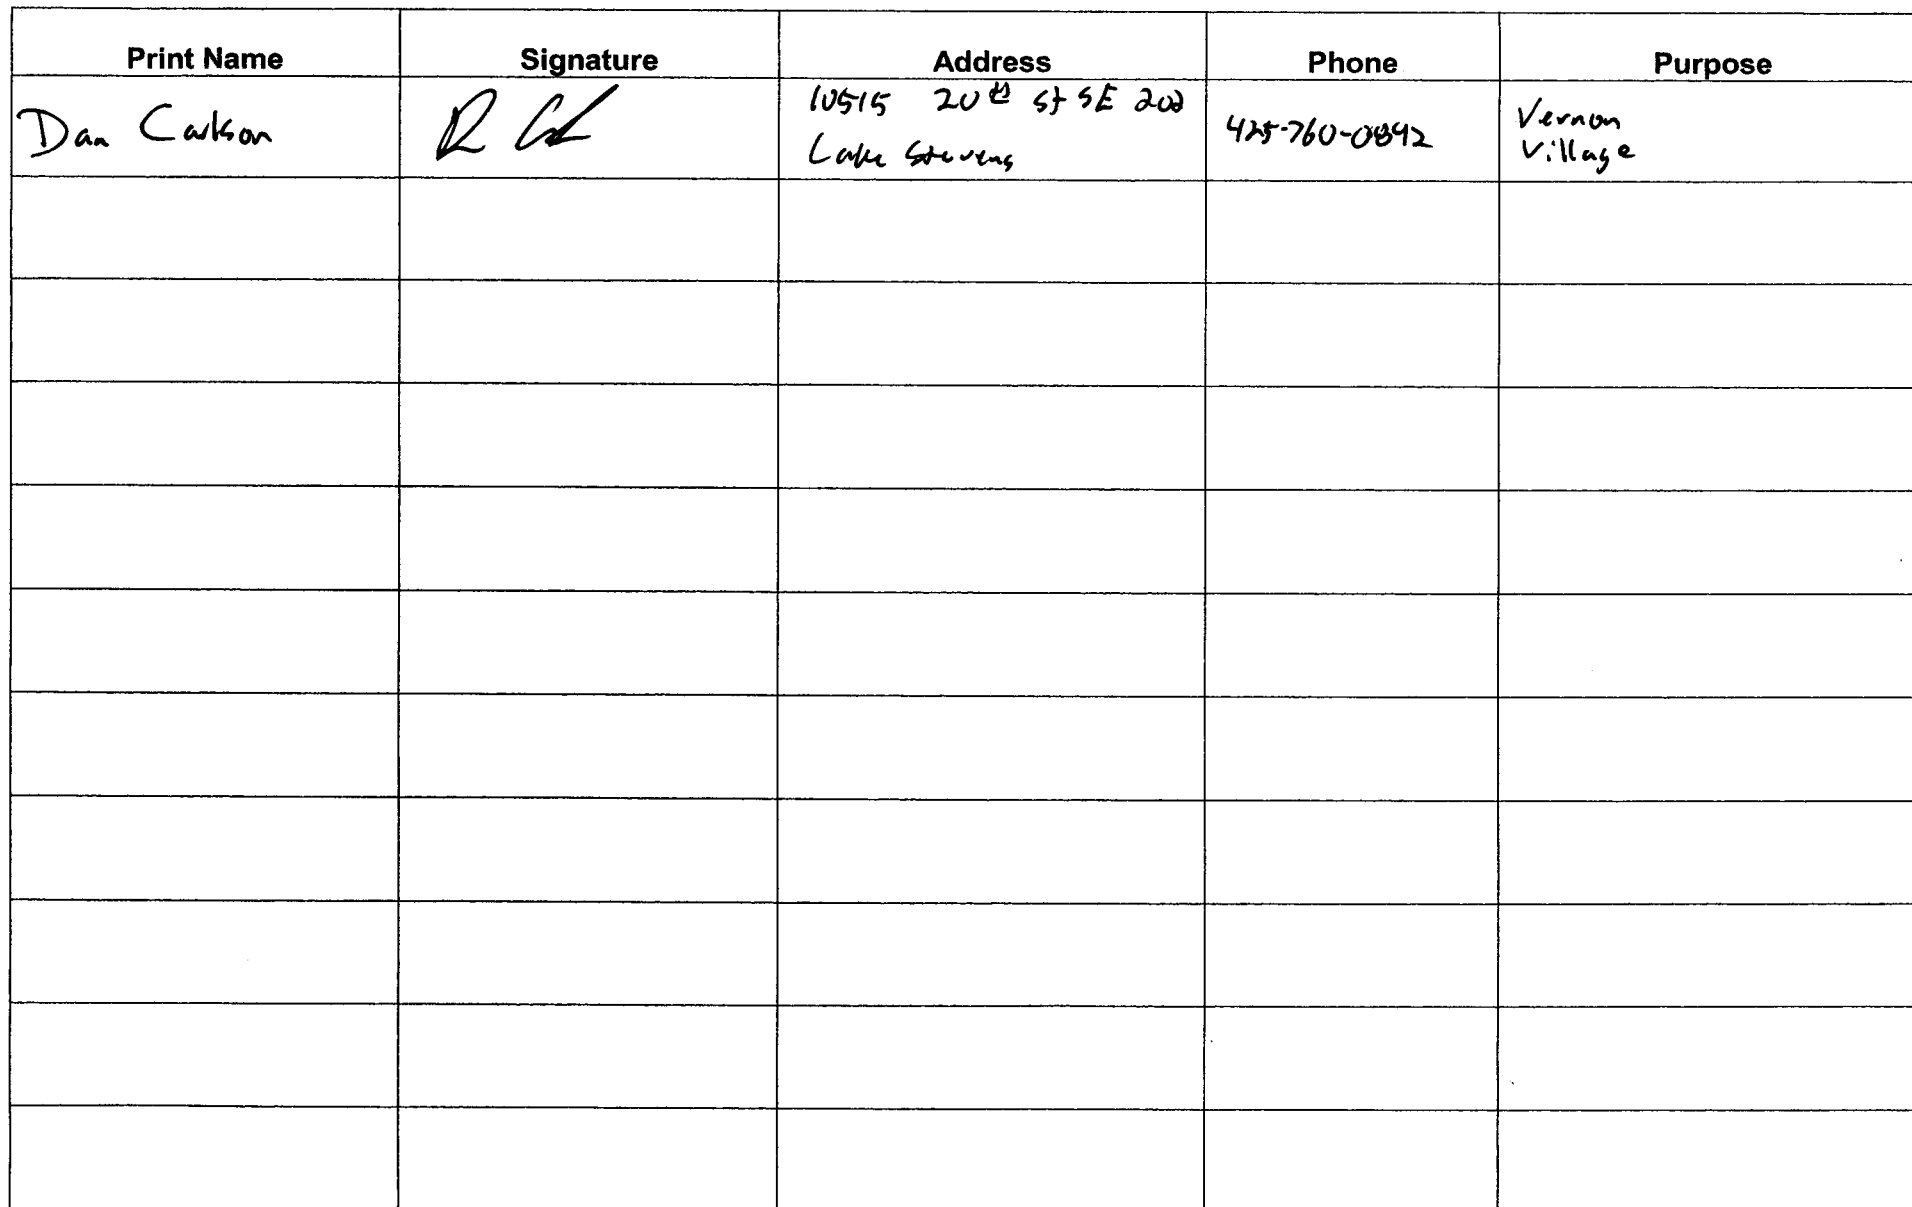 Print Name Signature Address Phone Purpose
Dan Carlson
10515 20th St SE 202
Lake Stevens
425-760-0892
Vernon
Village